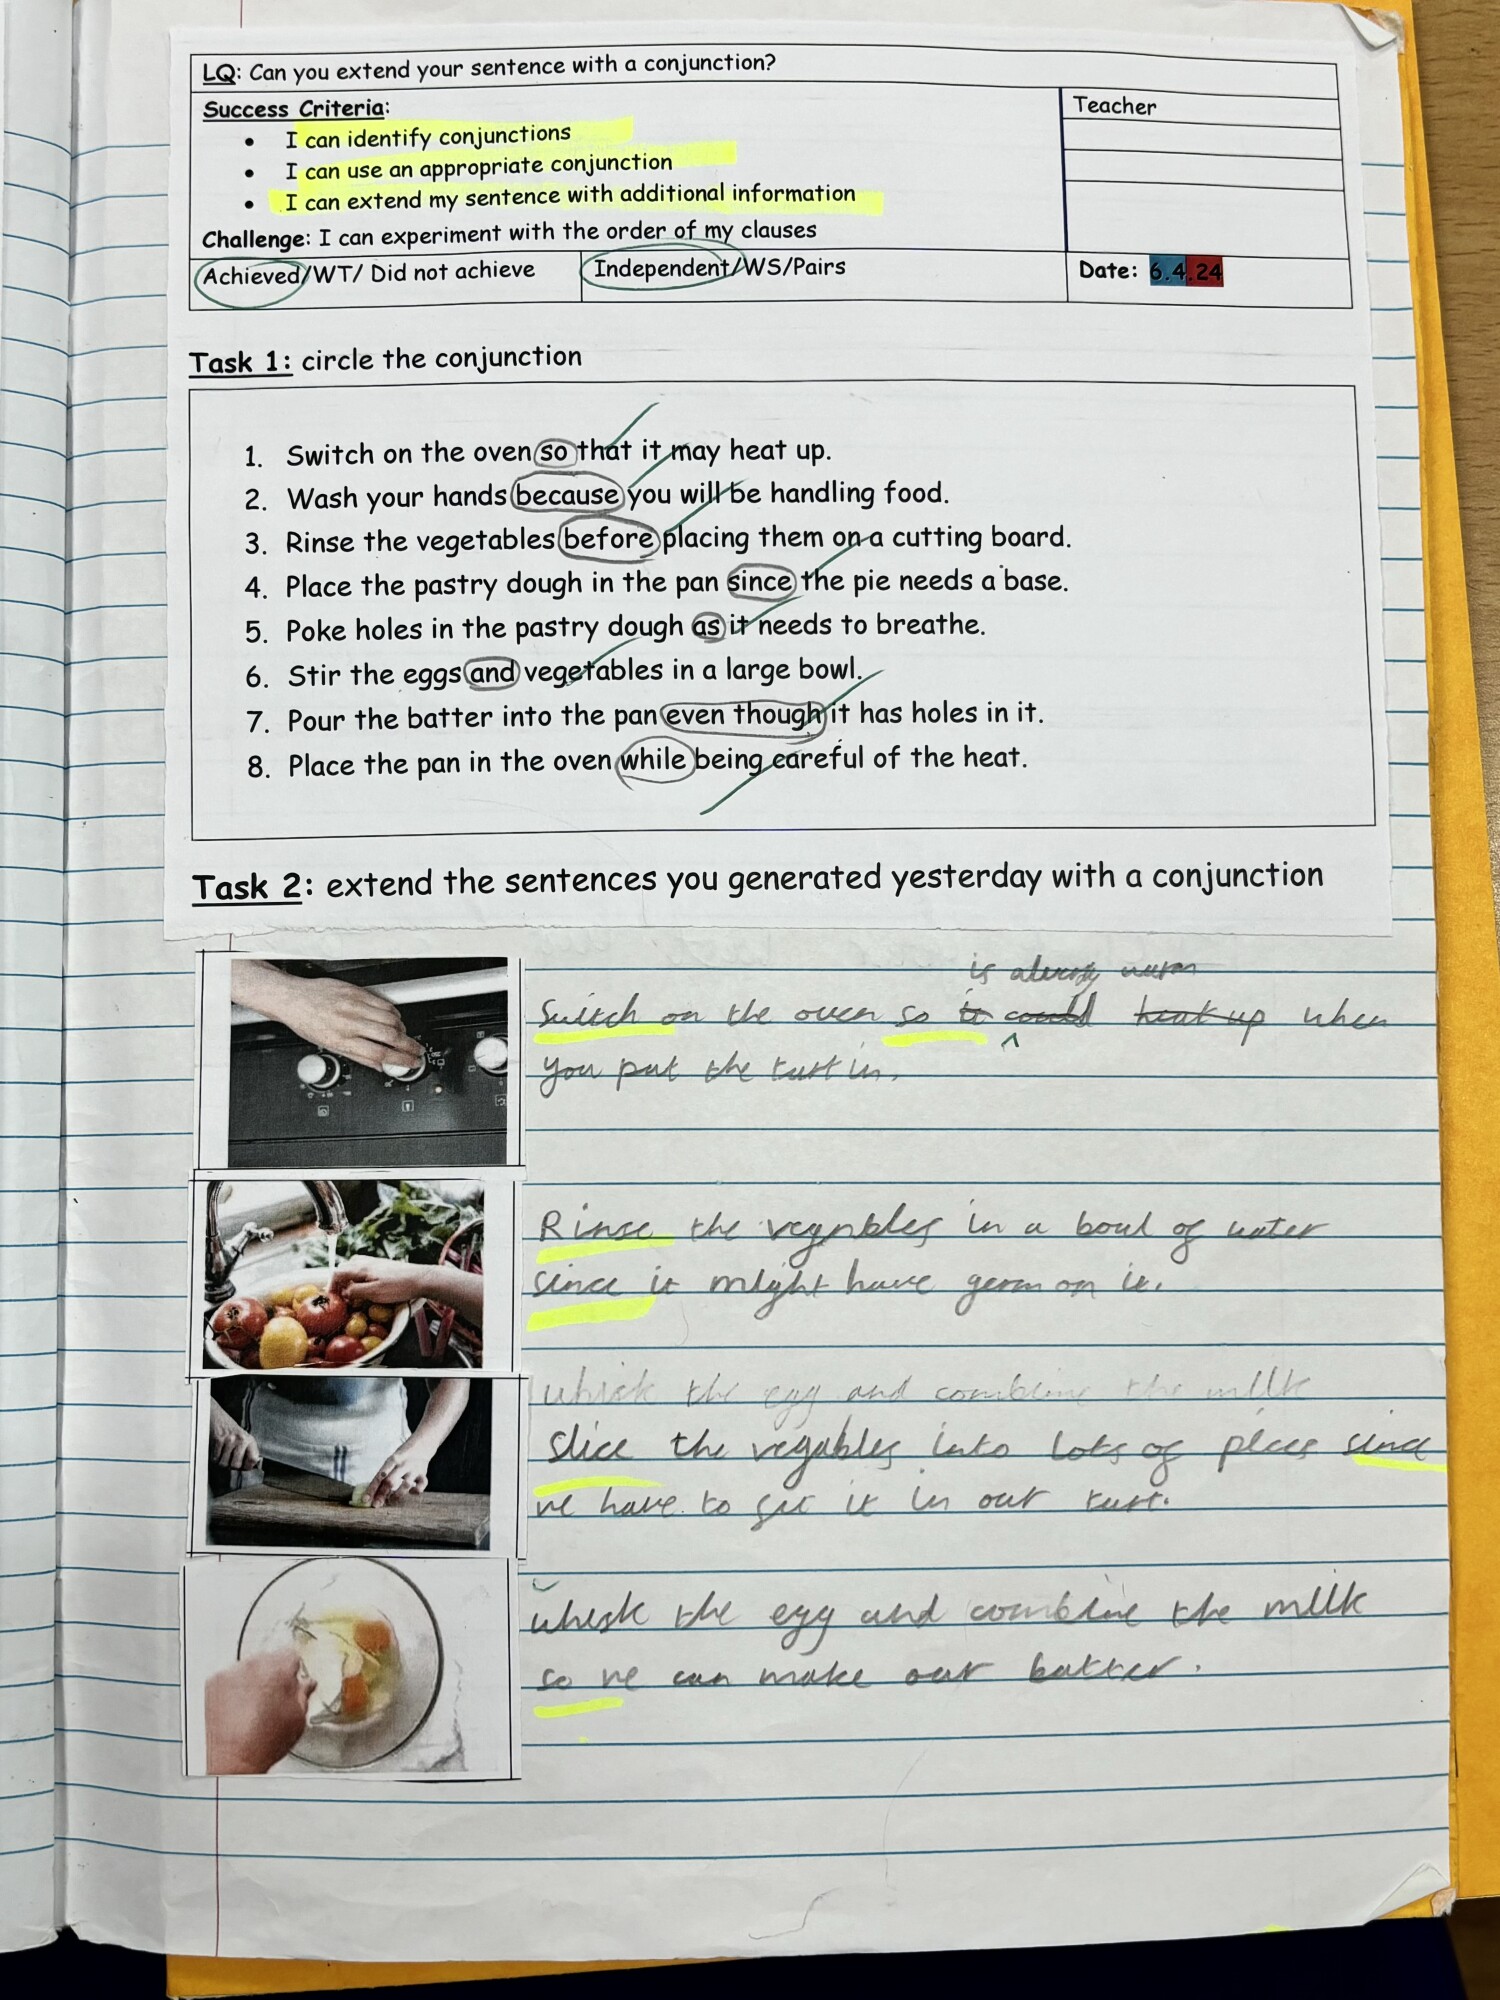 LQ: Can you extend your sentence with a conjunction?
Success Criteria:
Teacher
• I can identify conjunctions
• I can use an appropriate conjunction
• I can extend my sentence with additional information
Challenge: I can experiment with the order of my clauses
Achieved/WT/ Did not achieve
Independent/WS/Pairs
Date: 6.4.24
Task 1: circle the conjunction
1. Switch on the oven so that it may heat up.
2. Wash your hands because you will be handling food.
3. Rinse the vegetables before placing them on a cutting board.
4. Place the pastry dough in the pan since the pie needs a base.
5. Poke holes in the pastry dough as it needs to breathe.
6. Stir the eggs and vegetables in a large bowl.
7. Pour the batter into the pan even though it has holes in it.
8. Place the pan in the oven while being careful of the heat.
Task 2: extend the sentences you generated yesterday with a conjunction
is warm
Switch on the oven so it could heat up when
you put the in.
Rinse the in a bowl of water
since it might have germ on it.
whisk the egg and combine the milk
slice the into lots of since
we have to it in our
whisk the egg and combine the milk
so we can make our batter.